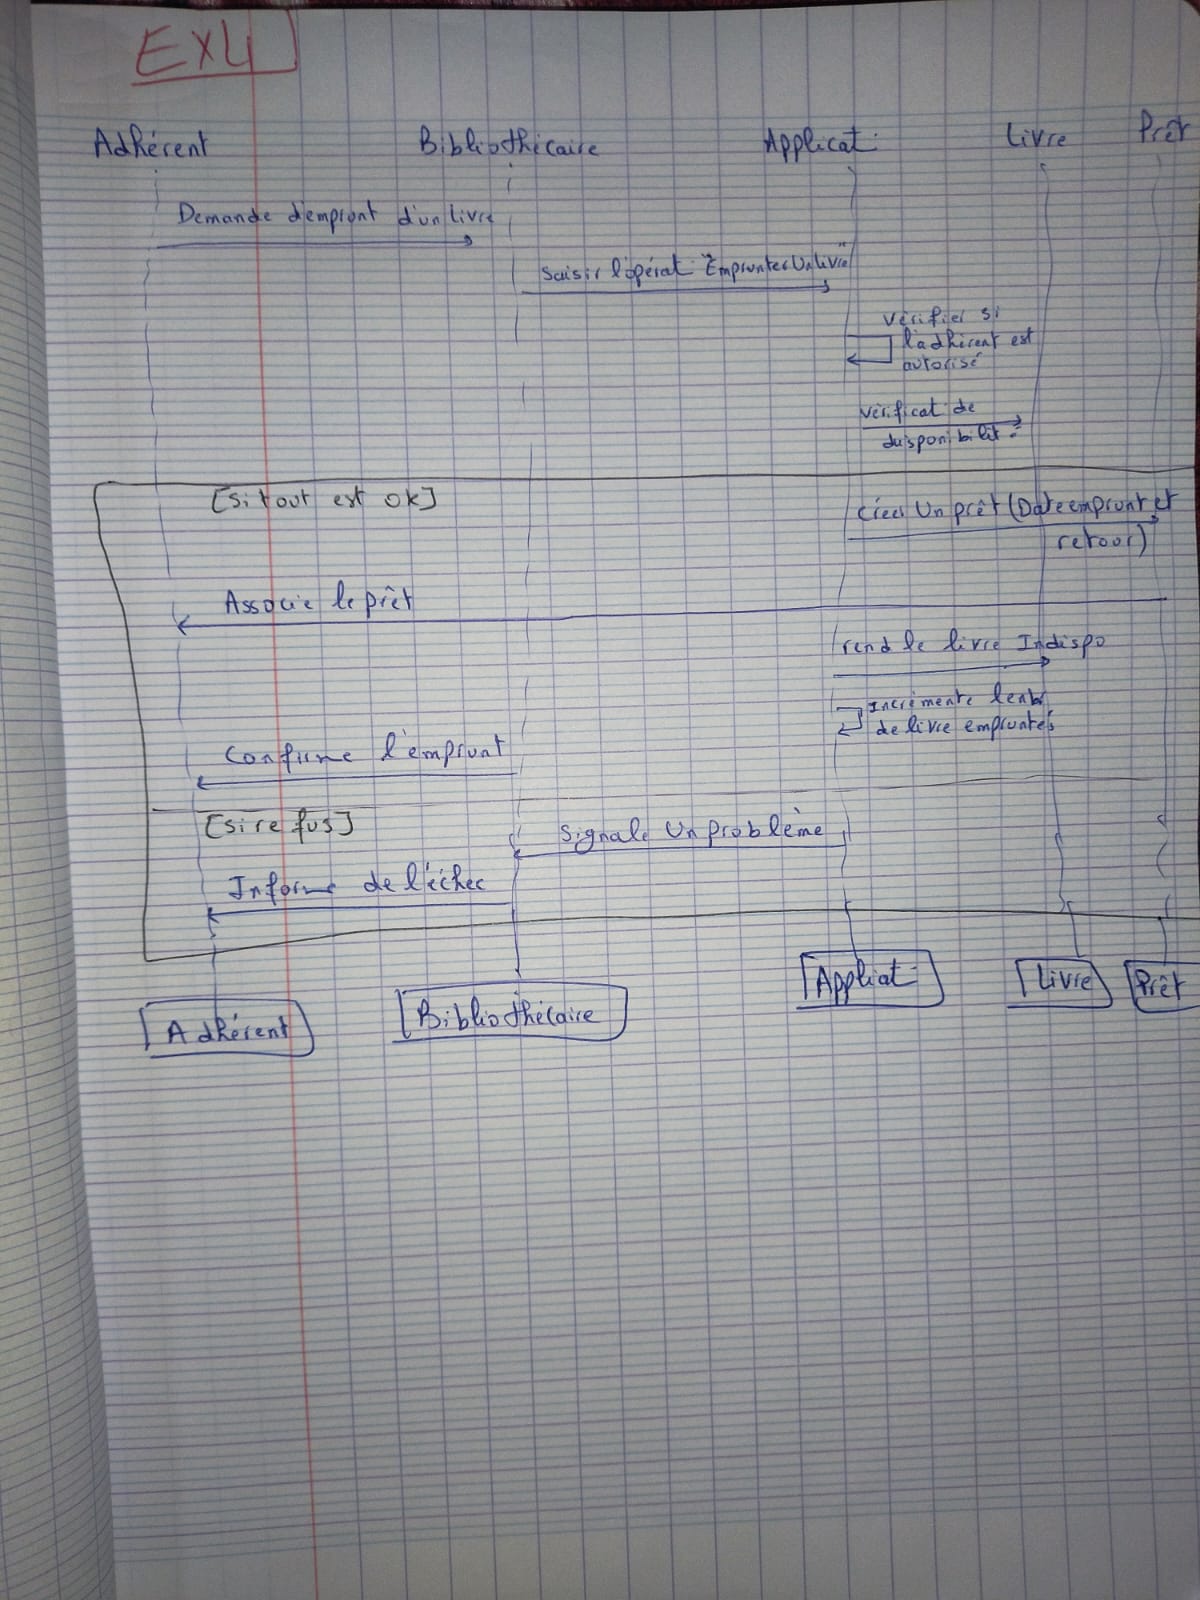 EX4
Adhérent Bibliothécaire Applicat° Livre Prêt
Demande d'emprunt d'un livre
Saisir l'opérat° "Emprunter Un livre"
Vérifier si
l'adhérent est
autorisé
Vérificat° de
disponibilité
[Si tout est ok]
Créer Un prêt (Date emprunt et
retour)
Associe le prêt
rend le livre Indispo
Incrémente le nbr
de livre empruntés
Confirme l'emprunt
[si refus]
Signale Un problème
Informe de l'échec
Applicat° Livre Prêt
Adhérent Bibliothécaire